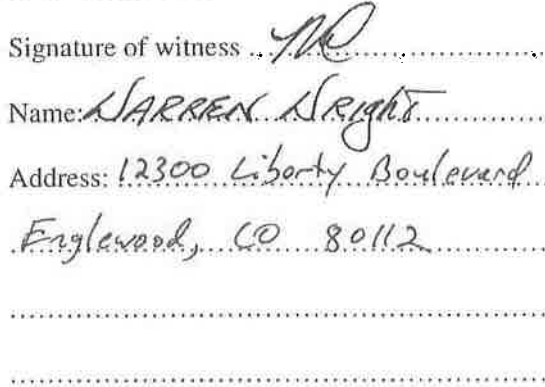 Signature of witness
Name: WARREN WRight
Address: 12300 Liberty Boulevard
Englewood, CO 80112